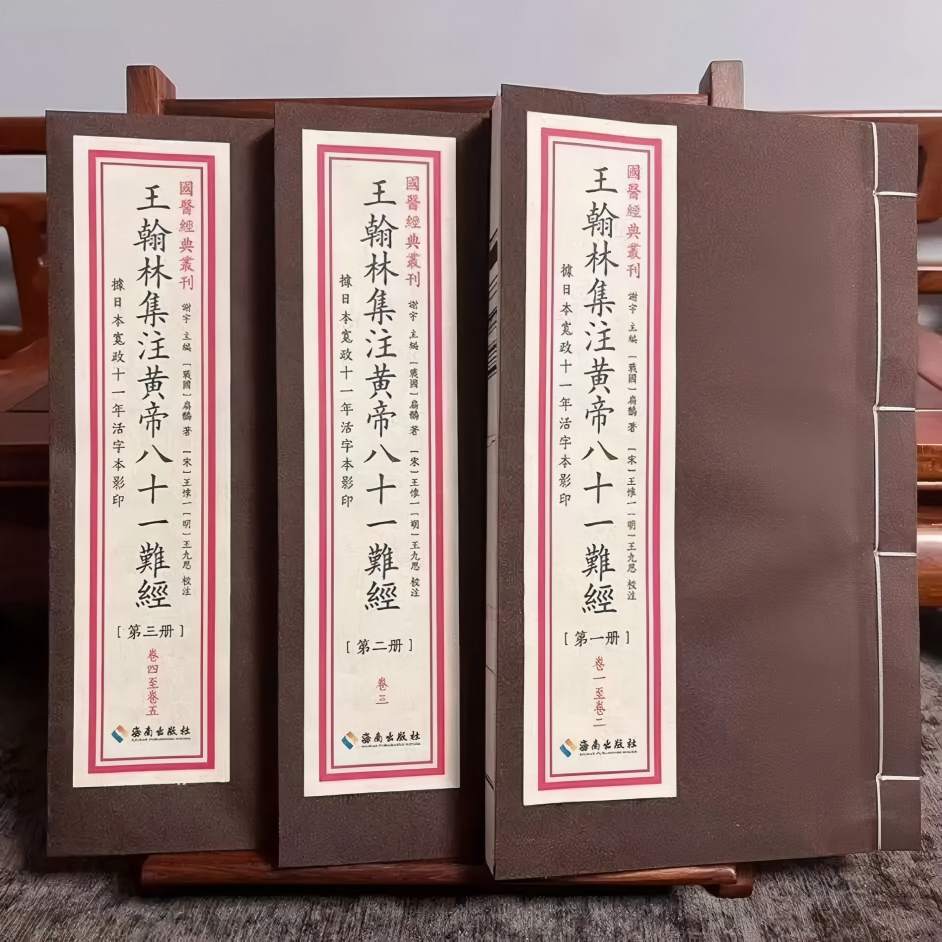 國醫經典叢刊 謝宇 主編 [戰國]扁鵲 著 [宋]王惟一[明]王九思 校注
王翰林集注黄帝八十一難經
[第一册]
卷一至卷二
據日本寬政十一年活字本影印
海南出版社
國醫經典叢刊 謝宇 主編 [戰國]扁鵲 著 [宋]王惟一[明]王九思 校注
王翰林集注黄帝八十一難經
[第二册]
卷三
據日本寬政十一年活字本影印
海南出版社
國醫經典叢刊 謝宇 主編 [戰國]扁鵲 著 [宋]王惟一[明]王九思 校注
王翰林集注黄帝八十一難經
[第三册]
卷四至卷五
據日本寬政十一年活字本影印
海南出版社